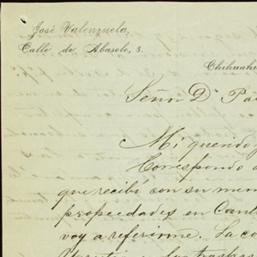 José Valenzuela,
Calle de Abasolo, 3.
Chihuahu
Señr Dn Pa
Mi querido
Correspondo a
que recibí con su mem
propiedades en Cant
voy a referirme. La co